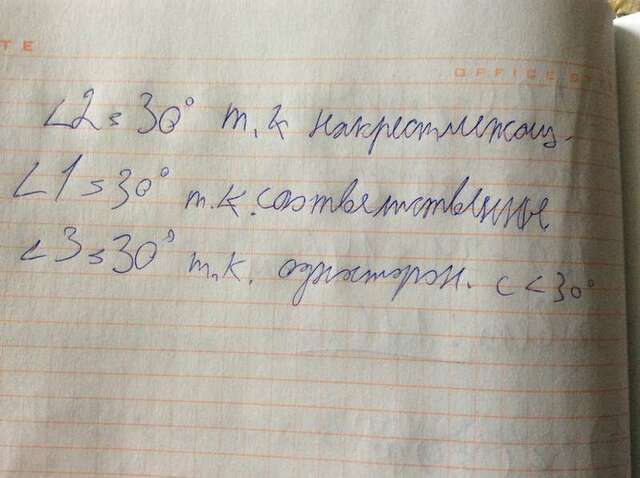 TE
OFFICE
<2=30° т.к накрестлежащ.
<1=30° т.к. соответственные
<3=30° т.к. односторон. с <30°